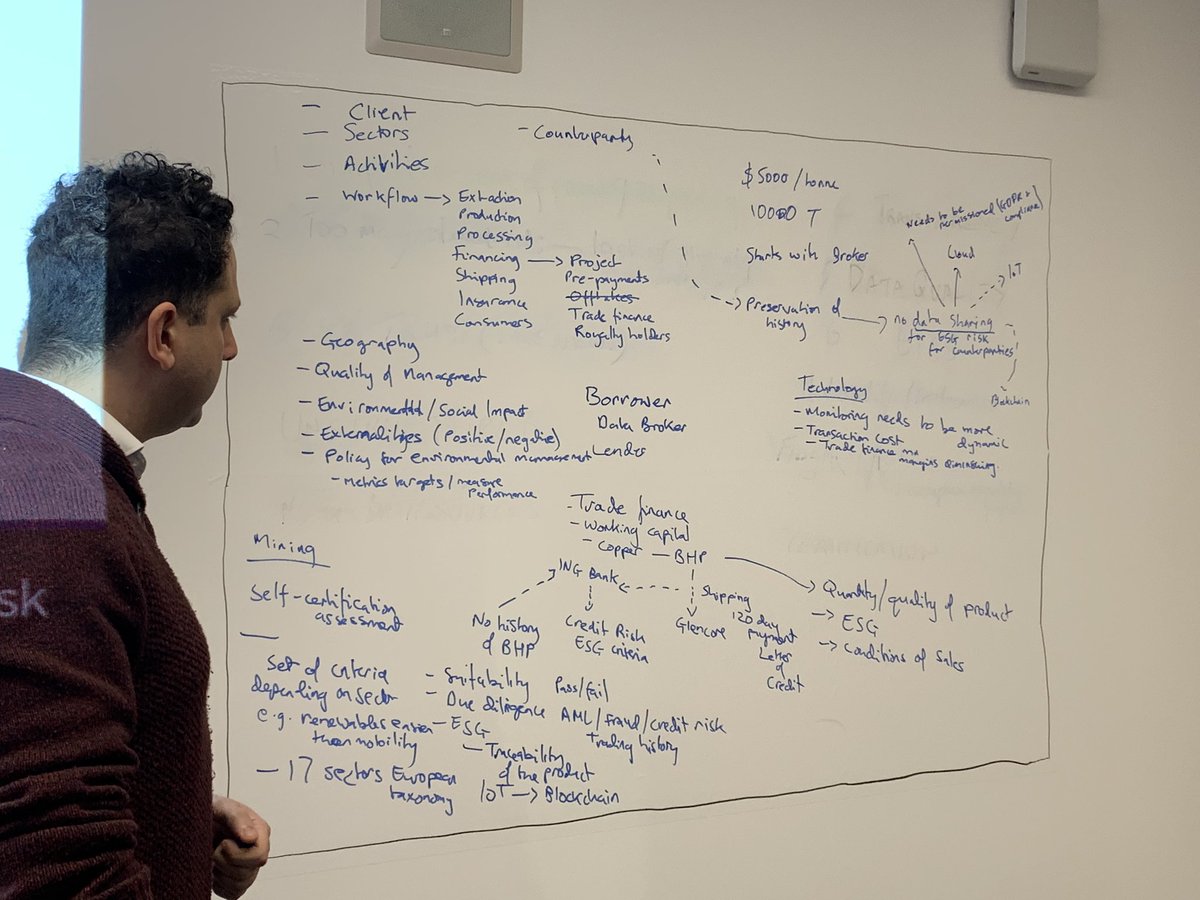 - Client
- Sectors
- Activities
- Workflow → Extraction
Production
Processing
Financing → Project
Shipping
Insurance
Consumers
Pre-payments
Offtakes
Trade finance
Royalty holders
- Counterparty
$5000/tonne
10000 T
Starts with Broker
→ Preservation of
history
→ no data sharing -
for ESG risk
for counterparties!
Needs to be
permissioned (GDPR +
compliance)
Cloud
IoT
Blockchain
- Geography
- Quality of Management
- Environmental/Social Impact
- Externalities (Positive/negative)
- Policy for environmental management
- Metrics targets/measure
performance
Borrower
Data Broker
Lender
Technology
- Monitoring needs to be more
dynamic
- Transaction cost
- Trade finance
margins diminishing
- Trade finance
- Working capital
- Copper — BHP
ING Bank
No history
of BHP
Credit Risk
ESG criteria
Shipping
Glencore
120 day
payment
Letter
of
Credit
→ Quantity/quality of product
→ ESG
→ Conditions of Sales
Mining
Self-certification
assessment
Set of Criteria
depending on sector
e.g. renewables easier
than mobility
- 17 sectors European
taxonomy
- Suitability Pass/fail
- Due diligence AML/fraud/credit risk
Trading history
- ESG
- Traceability
of the product
IoT → Blockchain
sk